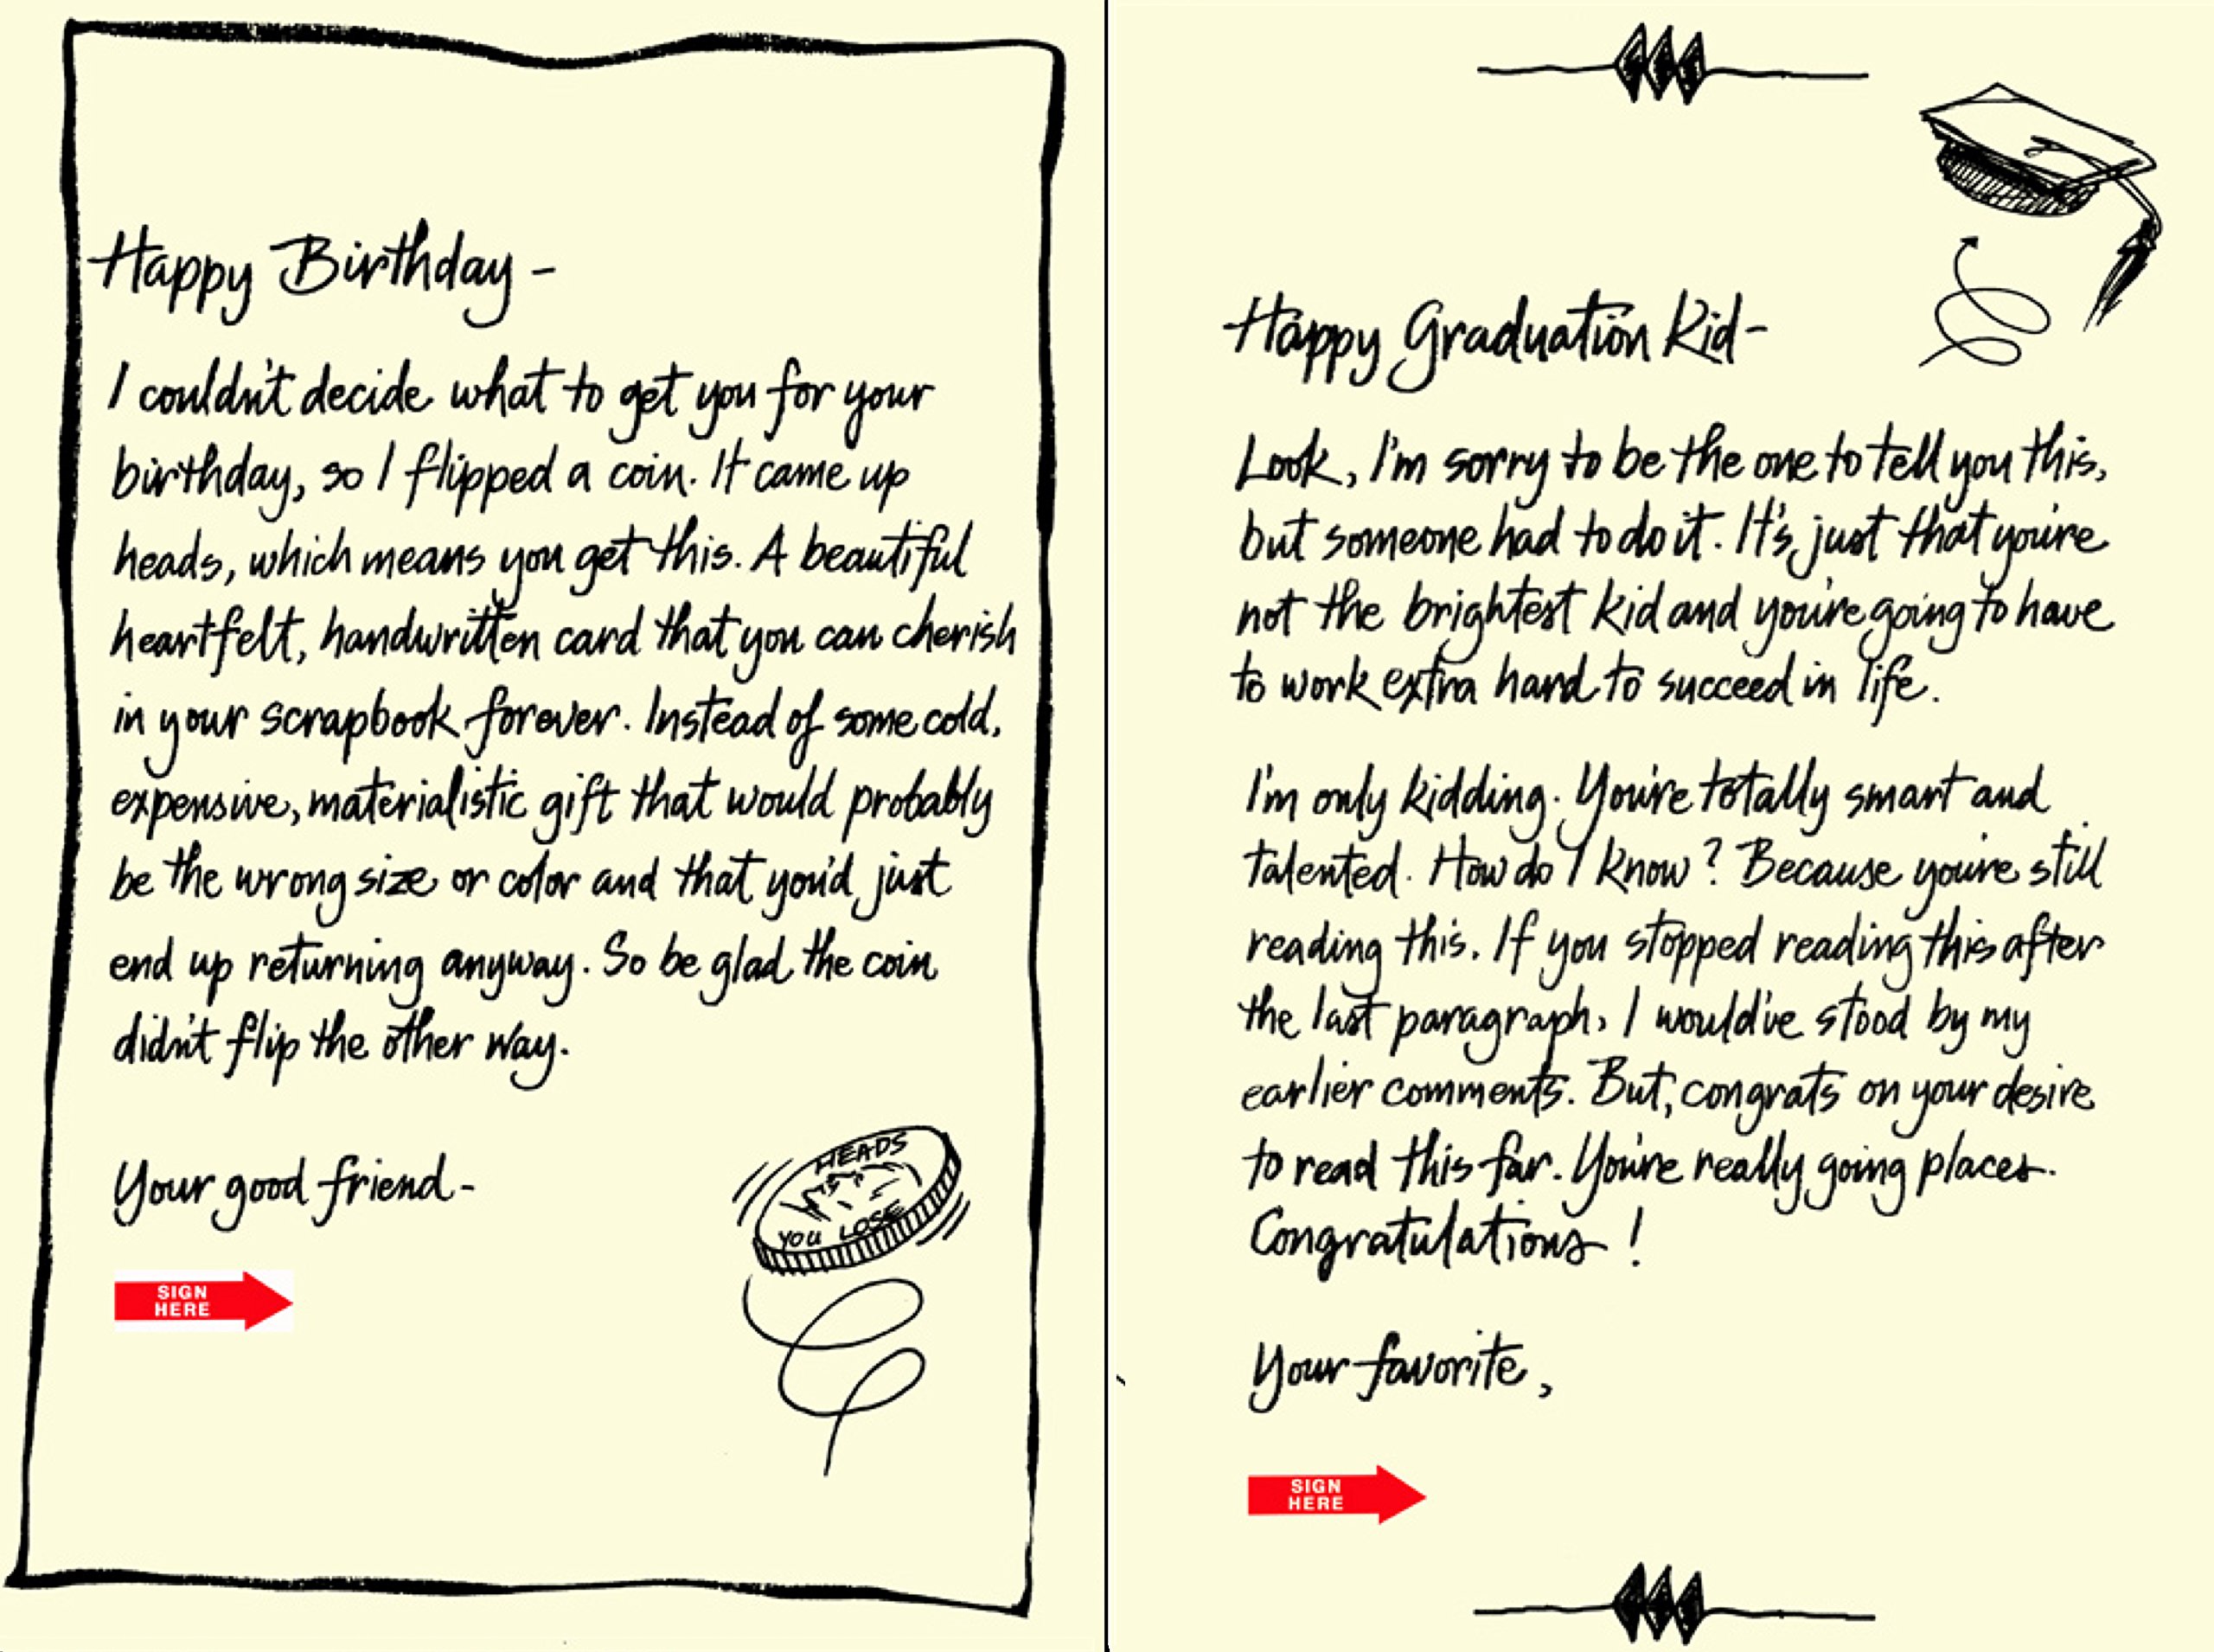 Happy Birthday -
I couldn't decide what to get you for your
birthday, so I flipped a coin. It came up
heads, which means you get this. A beautiful
heartfelt, handwritten card that you can cherish
in your scrapbook forever. Instead of some cold,
expensive, materialistic gift that would probably
be the wrong size or color and that you'd just
end up returning anyway. So be glad the coin
didn't flip the other way.
Your good friend -
HEADS
YOU LOSE
SIGN
HERE
Happy Graduation Kid-
Look, I'm sorry to be the one to tell you this,
but someone had to do it. It's just that you're
not the brightest kid and you're going to have
to work extra hard to succeed in life.
I'm only kidding. You're totally smart and
talented. How do I know? Because you're still
reading this. If you stopped reading this after
the last paragraph, I would've stood by my
earlier comments. But, congrats on your desire
to read this far. You're really going places.
Congratulations!
Your favorite,
SIGN
HERE